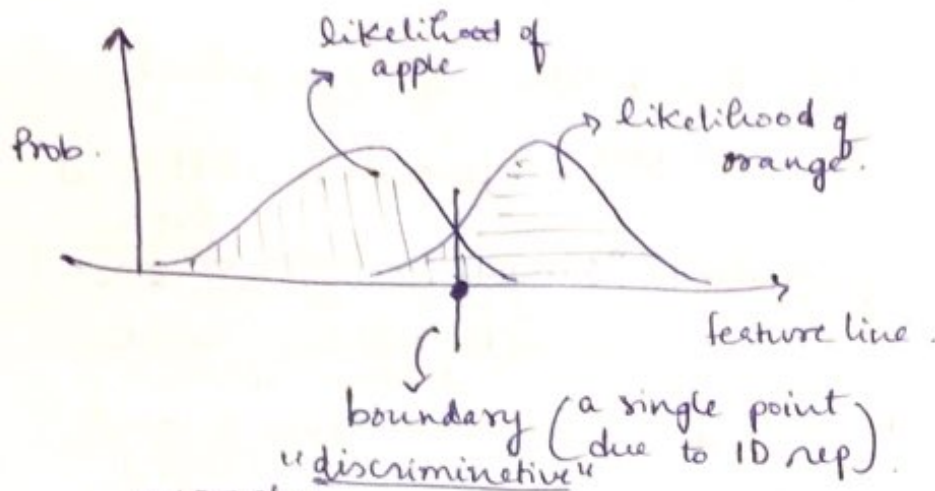 likelihood of
apple
likelihood of
orange.
Prob.
feature line.
boundary (a single point
due to 1D rep)
"discriminetive"